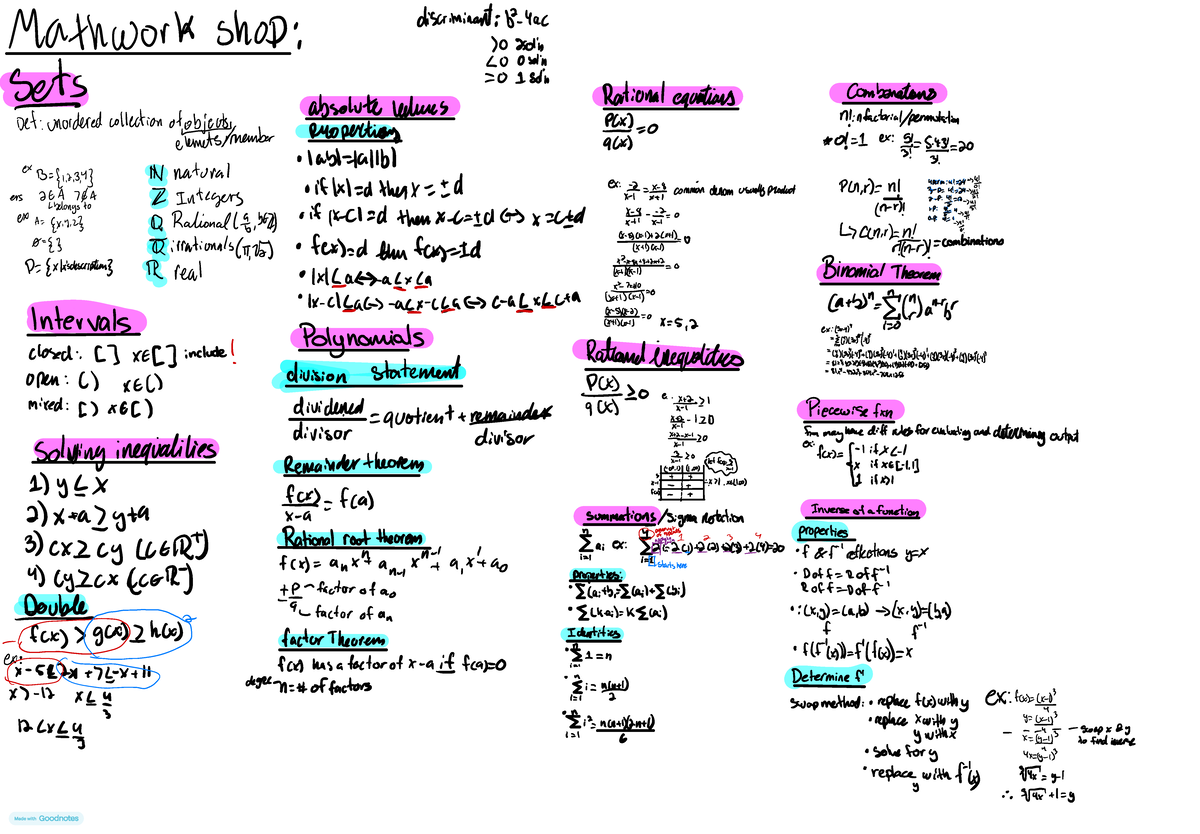 Mathwork shop:
discriminant: b²-4ac
>0 2soln
<0 0 soln
=0 1 soln
Sets
Def: unordered collection of objects,
elements/member
ex B={1,2,3,4}
2∈A 7∉A
belongs to
A={x,y,z}
∅={}
D={x|x is description}
ℕ natural
ℤ Integers
ℚ Rational
irrationals (π,√2)
ℝ real
Intervals
closed: [ ] x∈[ ] include!
open: ( ) x∈( )
mixed: [ ) x∈[ )
Solving inequalities
1) y≤x
2) x+a≥y+a
3) cx≥cy (c∈ℝ⁺)
4) cy≥cx (c∈ℝ⁻)
Double
f(x)>g(x)≥h(x)
ex:
x>-12 x≤4/3
12<x≤4/3
absolute values
properties
• |ab|=|a||b|
• if |x|=d then x=±d
• if |x-c|=d then x-c=±d ↔ x=c±d
• f(x)=d then f(x)=±d
• |x|≤a↔-a≤x≤a
• |x-c|≤a↔-a≤x-c≤a↔c-a≤x≤c+a
Polynomials
division statement
dividened/divisor = quotient + remainder/divisor
Remainder theorem
f(x)/x-a = f(a)
Rational root theorem
f(x)=aₙxⁿ+aₙ₋₁xⁿ⁻¹+a₁x¹+a₀
±p/q factor of a₀
factor of aₙ
factor Theorem
f(x) has a factor of x-a if f(a)=0
degree n=# of factors
Rational equations
P(x)/q(x)=0
ex: -2/x-1 = x-8/x+1 common denom usually product
x-8/x+1 - -2/x-1 =0
(x-8)(x-1)+2(x+1)/(x+1)(x-1)=0
x²-7x+10/(x+1)(x-1)=0
(x-5)(x-2)/(x+1)(x-1)=0 x=5,2
Rational inequalities
P(x)/q(x)≥0
x+2/x-1≥1
x+2/x-1 -1≥0
x+2-x-1/x-1≥0
Summations/Sigma Notation
Σaᵢ ex: =2(1)+2(2)+2(3)+2(4)=20
starts here
properties:
• Σ(aᵢ+bᵢ)=Σ(aᵢ)+Σ(bᵢ)
• Σ(k·aᵢ)=kΣ(aᵢ)
Identities
Σ1=n
• Σi=n(n+1)/2
• Σi²=n(n+1)(2n+1)/6
Combinations
n!: n factorial/permutation
*0!=1 ex: 5!/3!=5·4·3!/3!=20
P(n,r)=n!/(n-r)!
↳C(n,r)=n!/r!(n-r)!=combinations
Binomial Theorem
(a+b)ⁿ=Σ(n r)aⁿ⁻ʳbʳ
Piecewise fxn
Fxn may have diff rules for evaluating and determining output
ex:
f(x)={-1 if x<-1
x if x∈[-1,1]
1 if x>1
Inverse of a function
properties
• f & f⁻¹ eflections y=x
• D of f = R of f⁻¹
R of f = D of f⁻¹
• :(x,y)=(a,b)→(x,y)=(b,a)
f f⁻¹
• f(f⁻¹(x))=f⁻¹(f(x))=x
Determine f⁻¹
Swap method: • replace f(x) with y
• replace x with y
y with x
• solve for y
• replace y with f⁻¹(x)
ex: f(x)=(x-1)³/4
y=(x-1)³/4
x=(y-1)³/4 - swap x & y
to find inverse
4x=(y-1)³
∛4x=y-1
∴ ∛4x+1=y
Made with Goodnotes